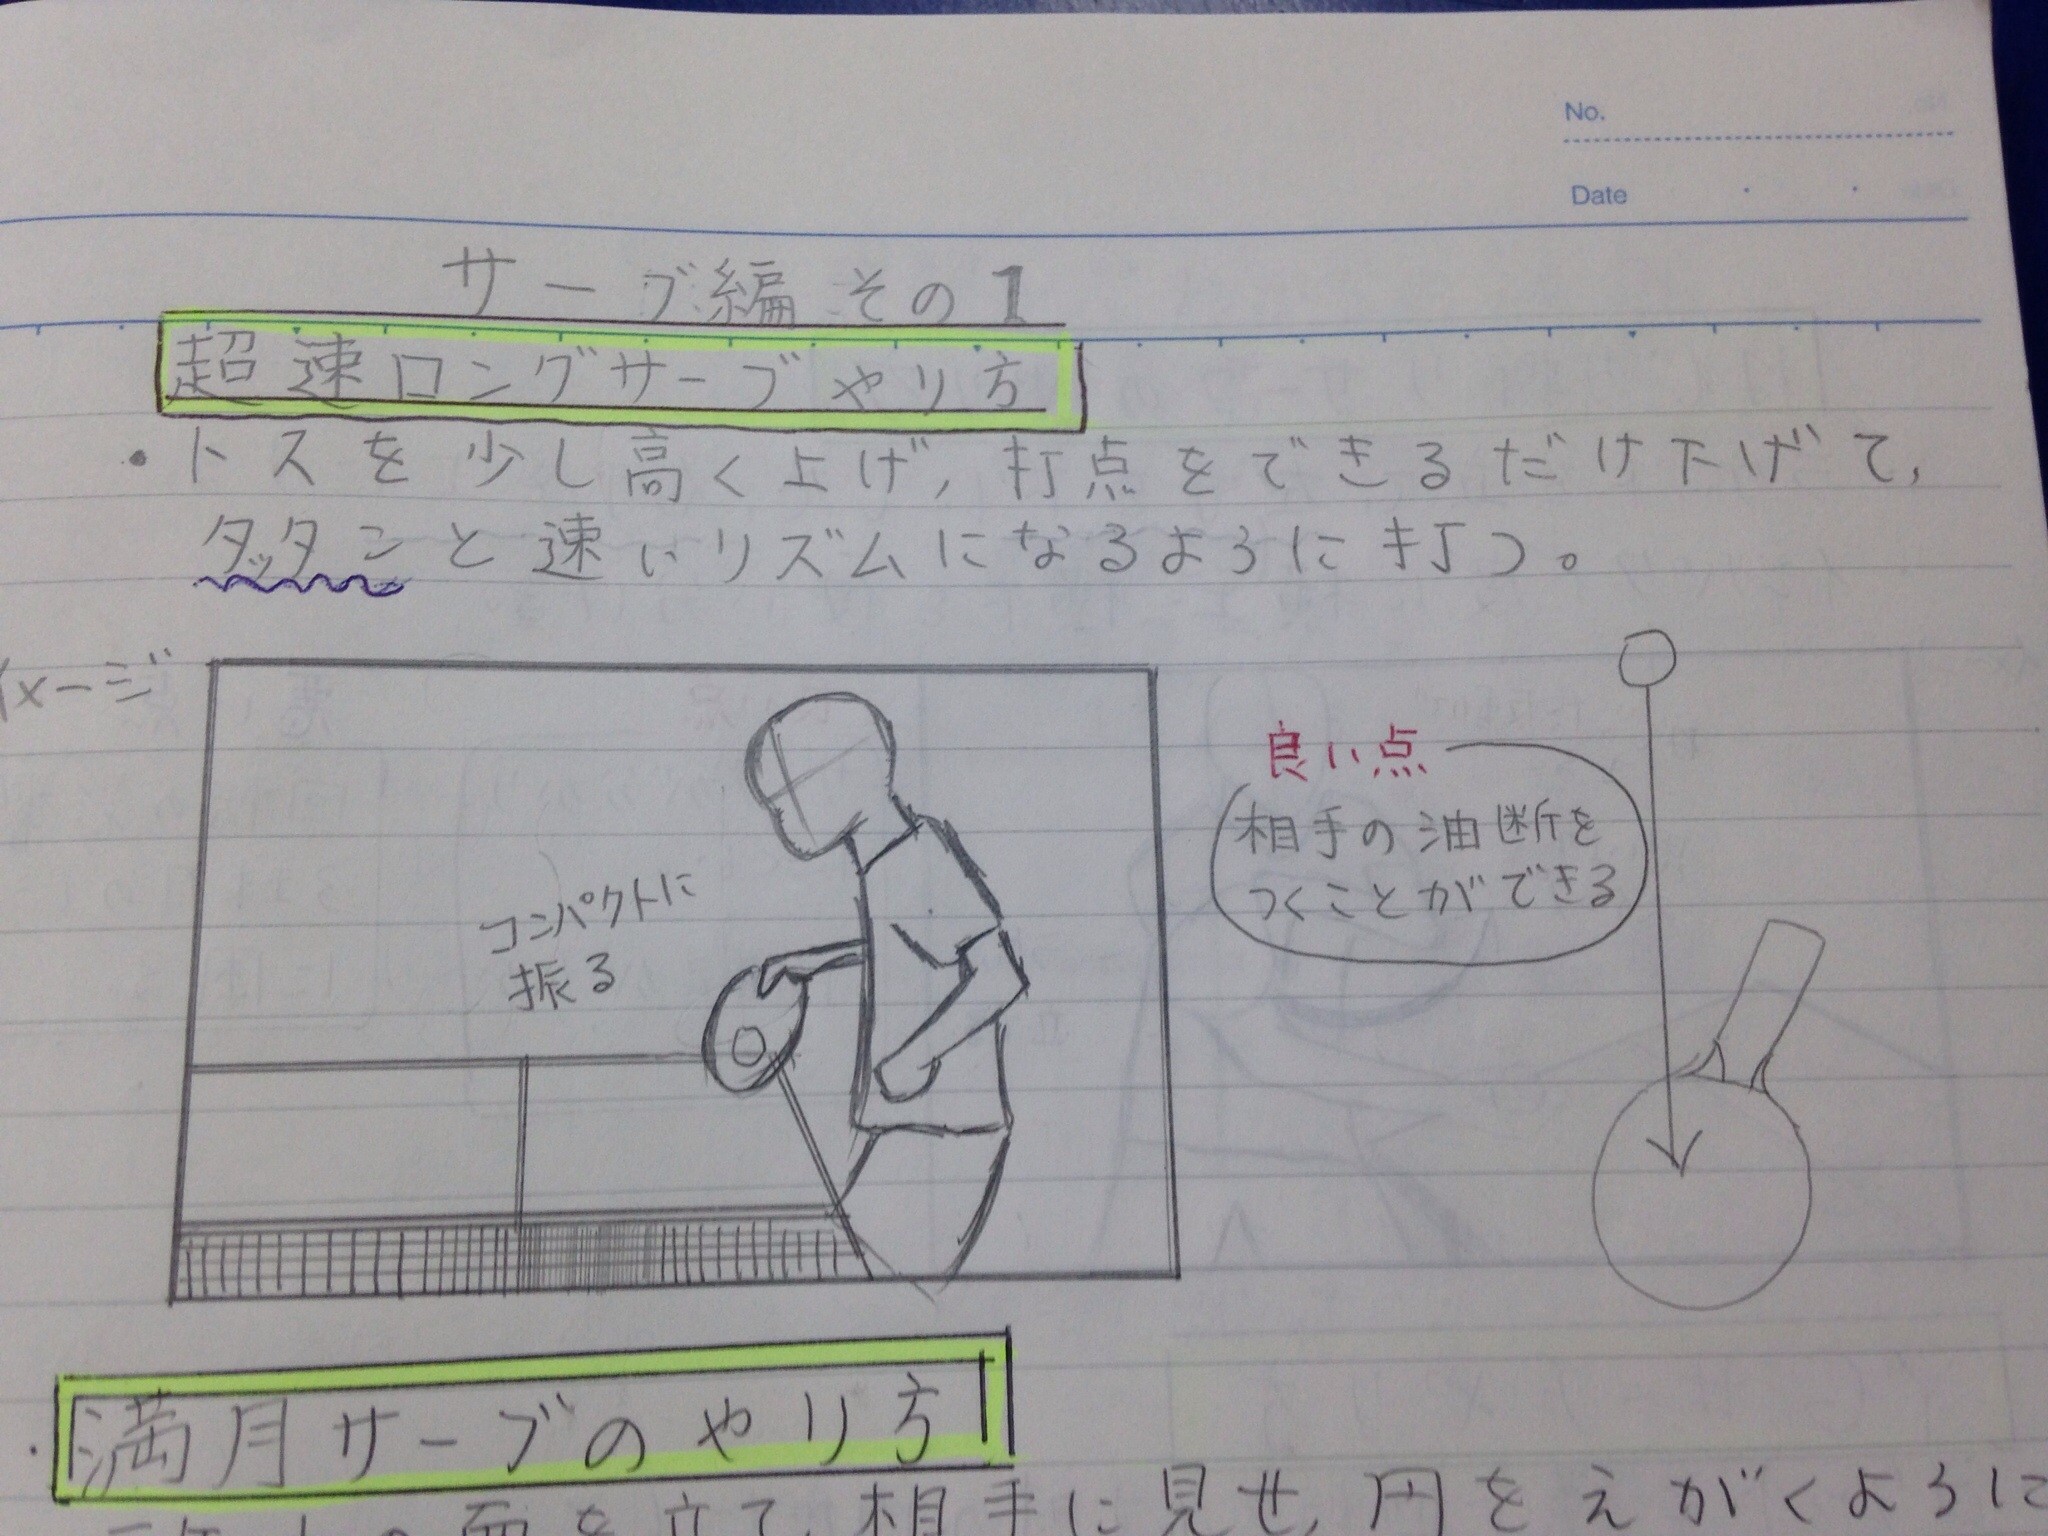 No.
Date
サーブ編 その1
超速ロングサーブやり方
・トスを少し高く上げ,打点をできるだけ下げて,
タッタンと速いリズムになるように打つ。
イメージ
コンパクトに
振る
良い点
相手の油断を
つくことができる
・満月サーブのやり方
の面を立て,相手に見せ,円をえがくように